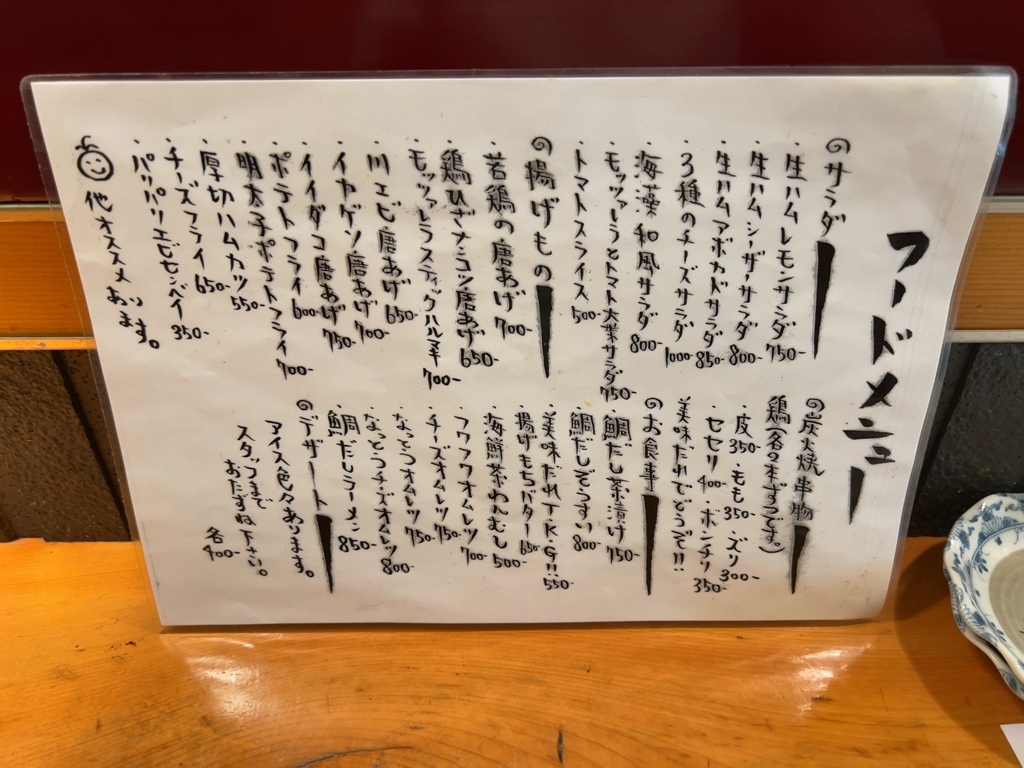 フードメニュー
サラダ
・生ハムレモンサラダ 750-
・生ハムシーザーサラダ 800-
・生ハムアボカドサラダ 850-
・3種のチーズサラダ 1000-
・海藻和風サラダ 800-
・モッツァレラとトマト大葉サラダ 750-
・トマトスライス 500-
揚げもの
・若鶏の唐あげ 700-
・鶏ひざナンコツ唐あげ 650-
・モッツァレラスティックハルマキ 700-
・川エビ唐あげ 650-
・イヤゲソ唐あげ 700-
・イイダコ唐あげ 750-
・ポテトフライ 600-
・明太子ポテトフライ 700-
・厚切ハムカツ 550-
・チーズフライ 650-
・パリパリエビセンベイ 350-
他オススメあります。
炭火焼串物
鶏(各2本ずつです。)
・皮 350-・もも 350-・ズリ 300-
・セセリ 400-・ボンチリ 350-
美味だれでどうぞ!!
お食事
・鯛だし茶漬け 750-
・鯛だしぞうすい 800-
・美味だれT.K.G!! 550-
・揚げもちバター 650-
・海鮮茶わんむし 500-
・フワフワオムレツ 700-
・チーズオムレツ 750-
・なっとうオムレツ 750-
・なっとうチーズオムレツ 800-
・鯛だしラーメン 850-
デザート
アイス色々あります。
スタッフまで
おたずね下さい。
各400-